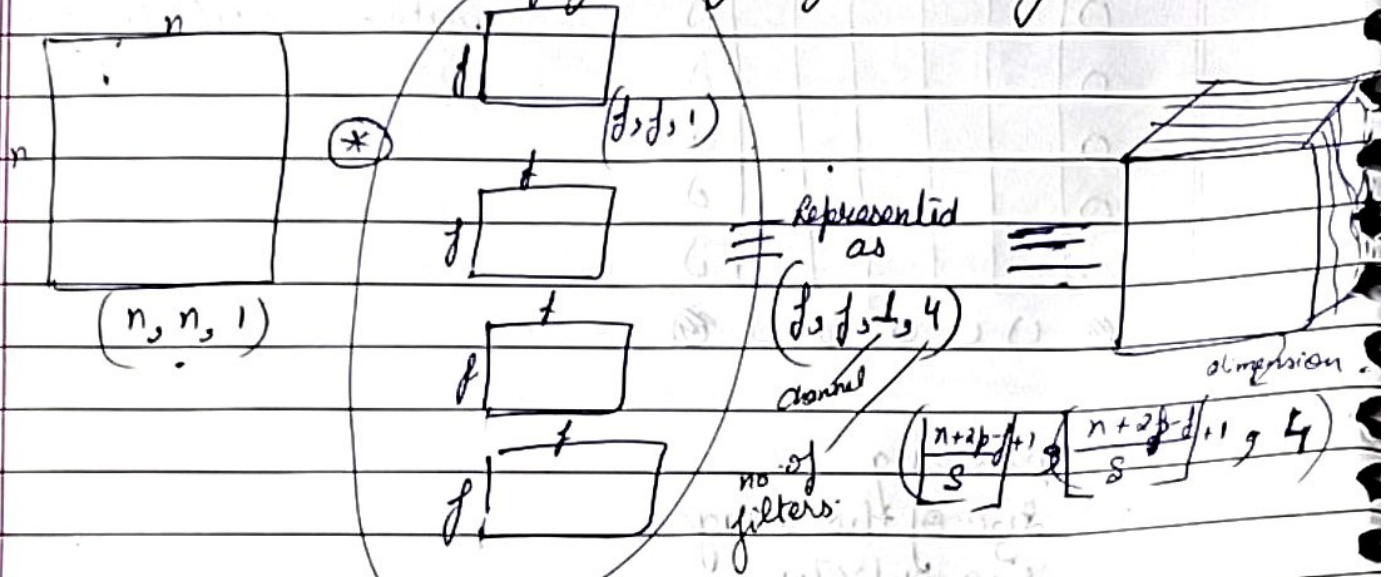 n
n
(n, n, 1)
*
f
(f, f, 1)
f
f
f
f
f
f
≡ Represented
as
≡
(f, f, 1, 4)
channel
no. of
filters.
dimension.
(⌊n+2p-f/s⌋+1, ⌊n+2p-f/s⌋+1, 4)